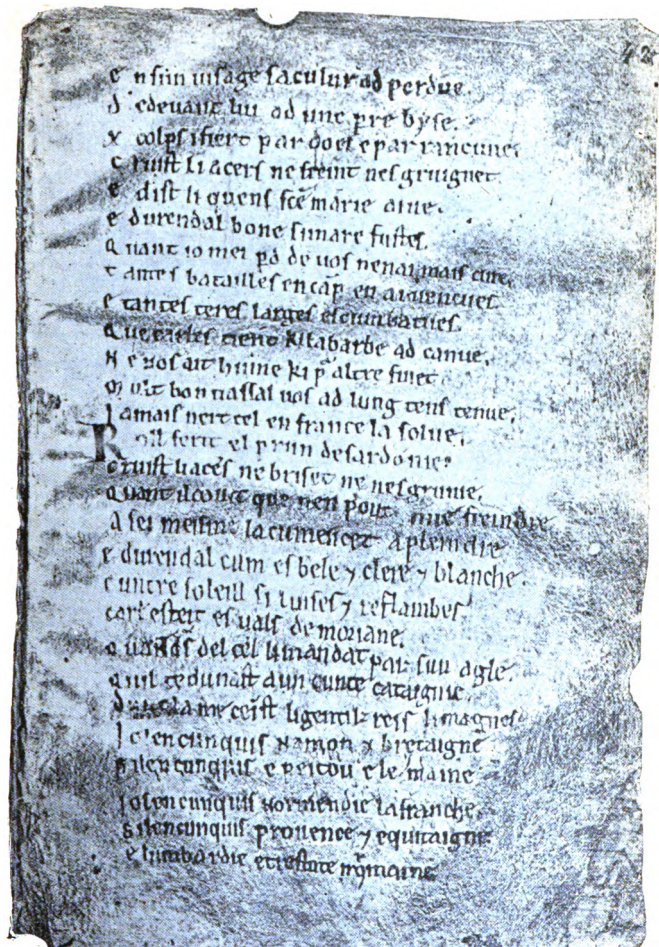 42
e n sun uisage sa culur ad perdue.
d edeuant lui ad une perre byse.
x colps i fiert par doel e par rancune.
c ruist li acers ne freint nesgruignet.
e dist li quens sce marie aiue.
e durendal bone si mare fustes.
q uant io mei pd de uos nenai mais cure.
t antes batailles en camp en ai uencues
e tantes teres larges escumbatues.
q ue carles tient ki la barbe ad canue.
n e uos ait hume ki pur altre fuiet
m ult bon uassal uos ad lung tens tenue.
J amais nert tel en france la solue.
R oll ferit el perrun de sardonie.
c ruist li acers ne briset ne nesgrunie.
q uant il ço uit que nen pout mie freindre
a sei meisme la cumencet a pleindre
e durendal cum es bele ⁊ clere ⁊ blanche.
c untre soleill si luises ⁊ reflambes
carles esteit es uals de moriane.
q uant ds del cel li mandat par sun agle.
q uil te dunast a un cunte cataignie.
d unc la me ceinst li gentilz reis li magnes
J o len cunquis namon ⁊ bretaigne
s i len cunquis e peitou e le maine
J o len cunquis normendie la franche.
s i len cunquis prouence ⁊ equitaigne
e lumbardie e trestute romaine